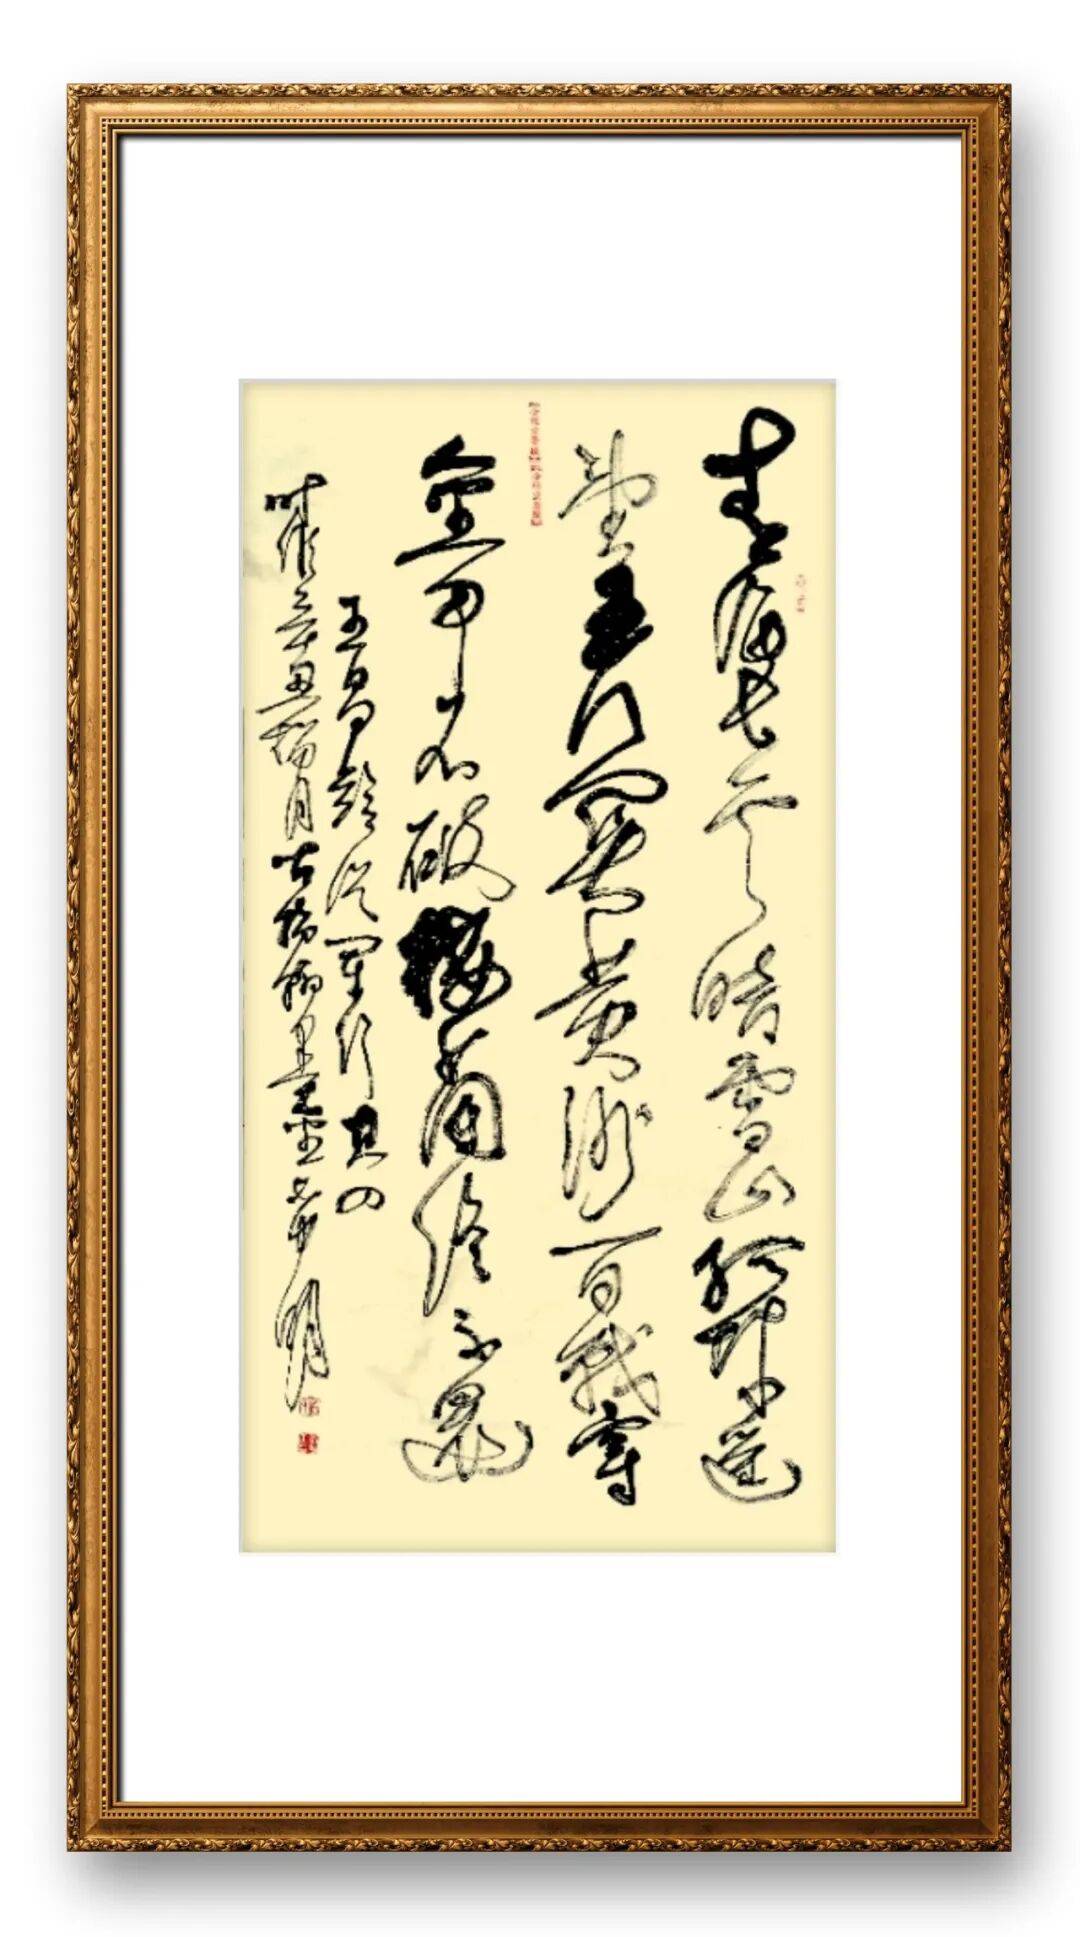 青海长云暗雪山孤城遥
望玉门關黄沙百战穿
金甲不破楼蘭终不還
王昌龄從军行其四
时维辛丑月古墨